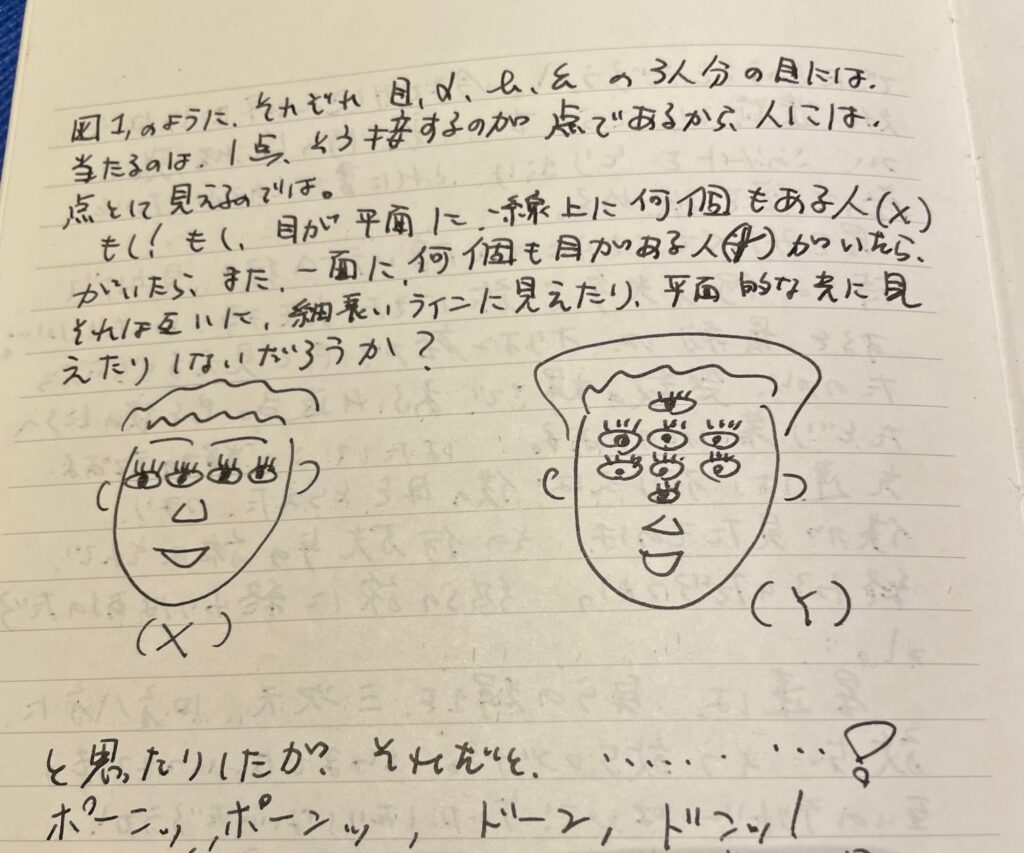 図1,のように、それぞれ 目, d, b, ε の 3人分の目には.
当たるのは、1点、そう接するのが 点であるから、人には、
点として見えるのでは。
もし! もし、目が平面に、一線上に何個もある人(X)
がいたら、また、一面に、何個も目がある人(Y)がいたら、
それは互いに、細長いラインに見えたり、平面的な光に見
えたりしないだろうか?
(X)
(Y)
と思ったりしたが? それだと、........ ...!
ポーンッ, ポーンッ, ドーン, ドンッ!